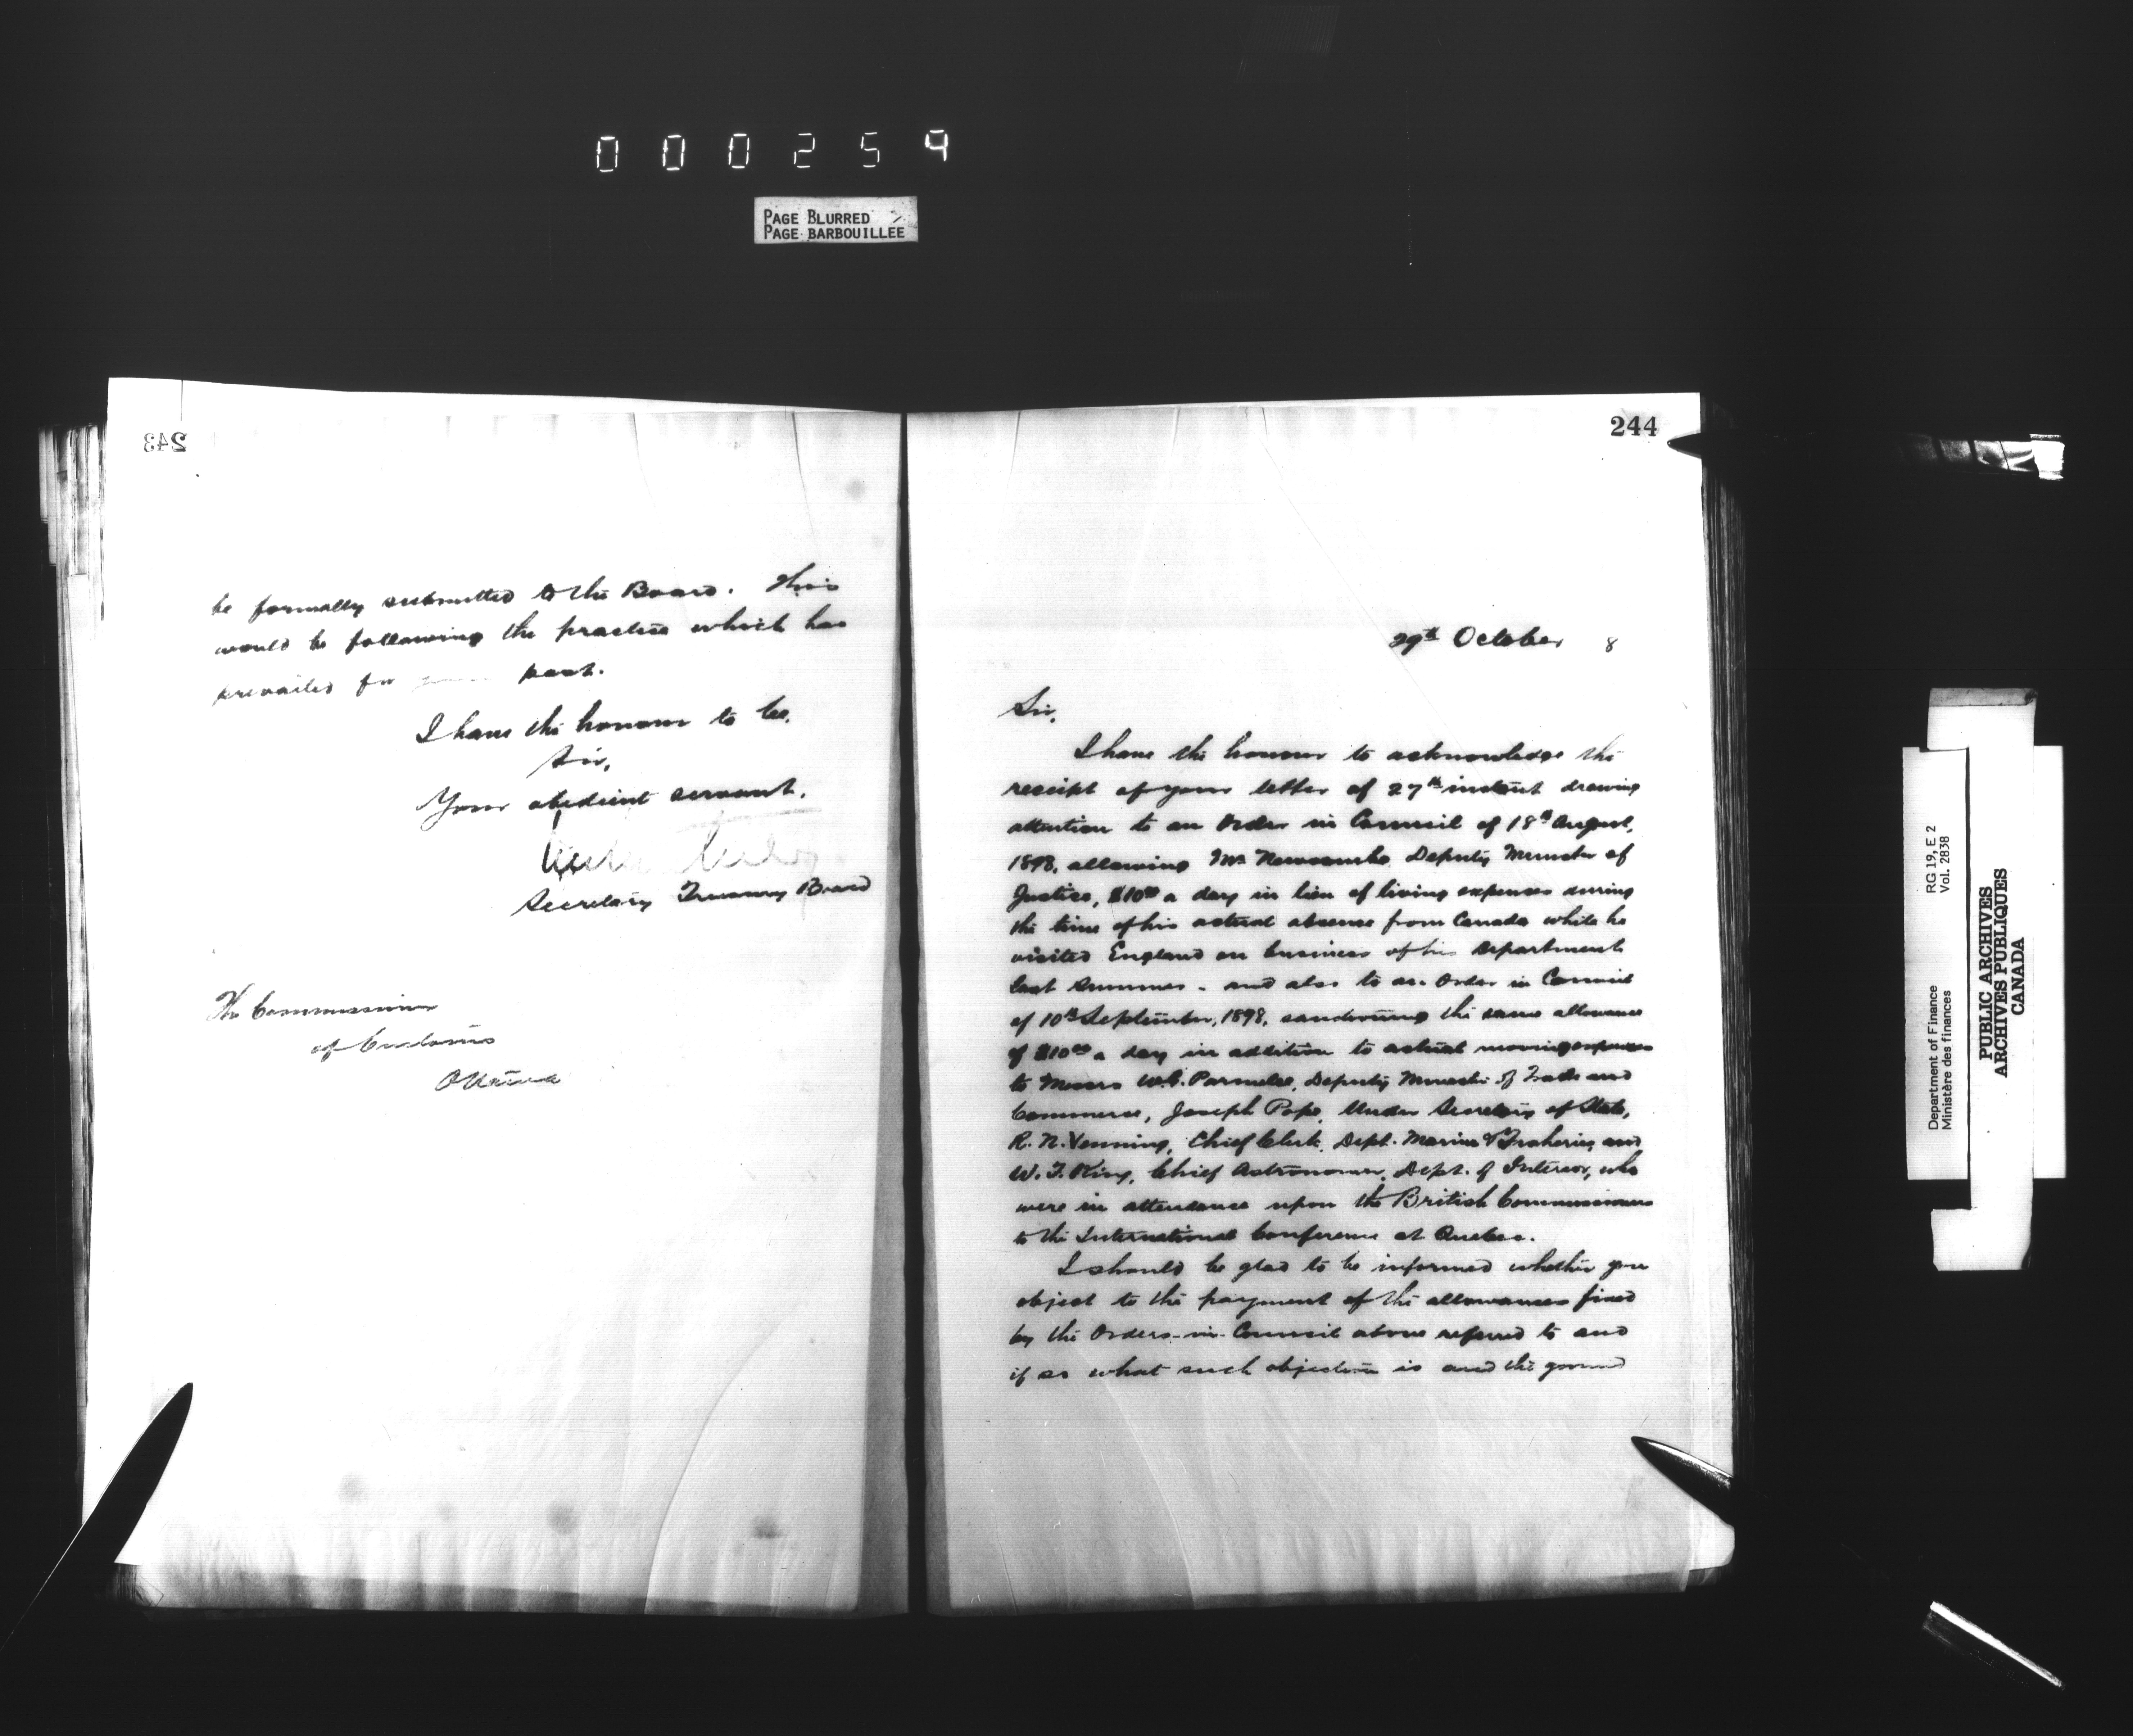 000259
PAGE BLURRED
PAGE BARBOUILLEE
243
be formally submitted to the Board. This
would be following the practice which has
prevailed for past.
I have the honour to be,
Sir,
Your obedient servant,
Secretary Treasury Board
The Commissioner
of Customs
Ottawa
244
29th October 8
Sir,
I have the honour to acknowledge the
receipt of your letter of 27th instant drawing
attention to an Order in Council of 18th August,
1898, allowing Mr Newcombe, Deputy Minister of
Justice, $10.00 a day in lieu of living expenses during
the time of his actual absence from Canada while he
visited England on business of his Department
last summer - and also to an Order in Council
of 10th September, 1898, sanctioning the same allowance
of $10.00 a day in addition to actual moving expenses
to Messrs W.G. Parmelee, Deputy Minister of Trade and
Commerce, Joseph Pope, Under Secretary of State,
R. N. Venning, Chief Clerk, Dept. Marine & Fisheries, and
W. F. King, Chief Astronomer, Dept. of Interior, who
were in attendance upon the British Commissioners
to the International Conference at Quebec.
I should be glad to be informed whether you
object to the payment of the allowances fixed
by the Orders-in-Council above referred to and
if so what such objection is and the ground
Department of Finance RG 19, E 2
Ministère des finances Vol. 2838
PUBLIC ARCHIVES
ARCHIVES PUBLIQUES
CANADA